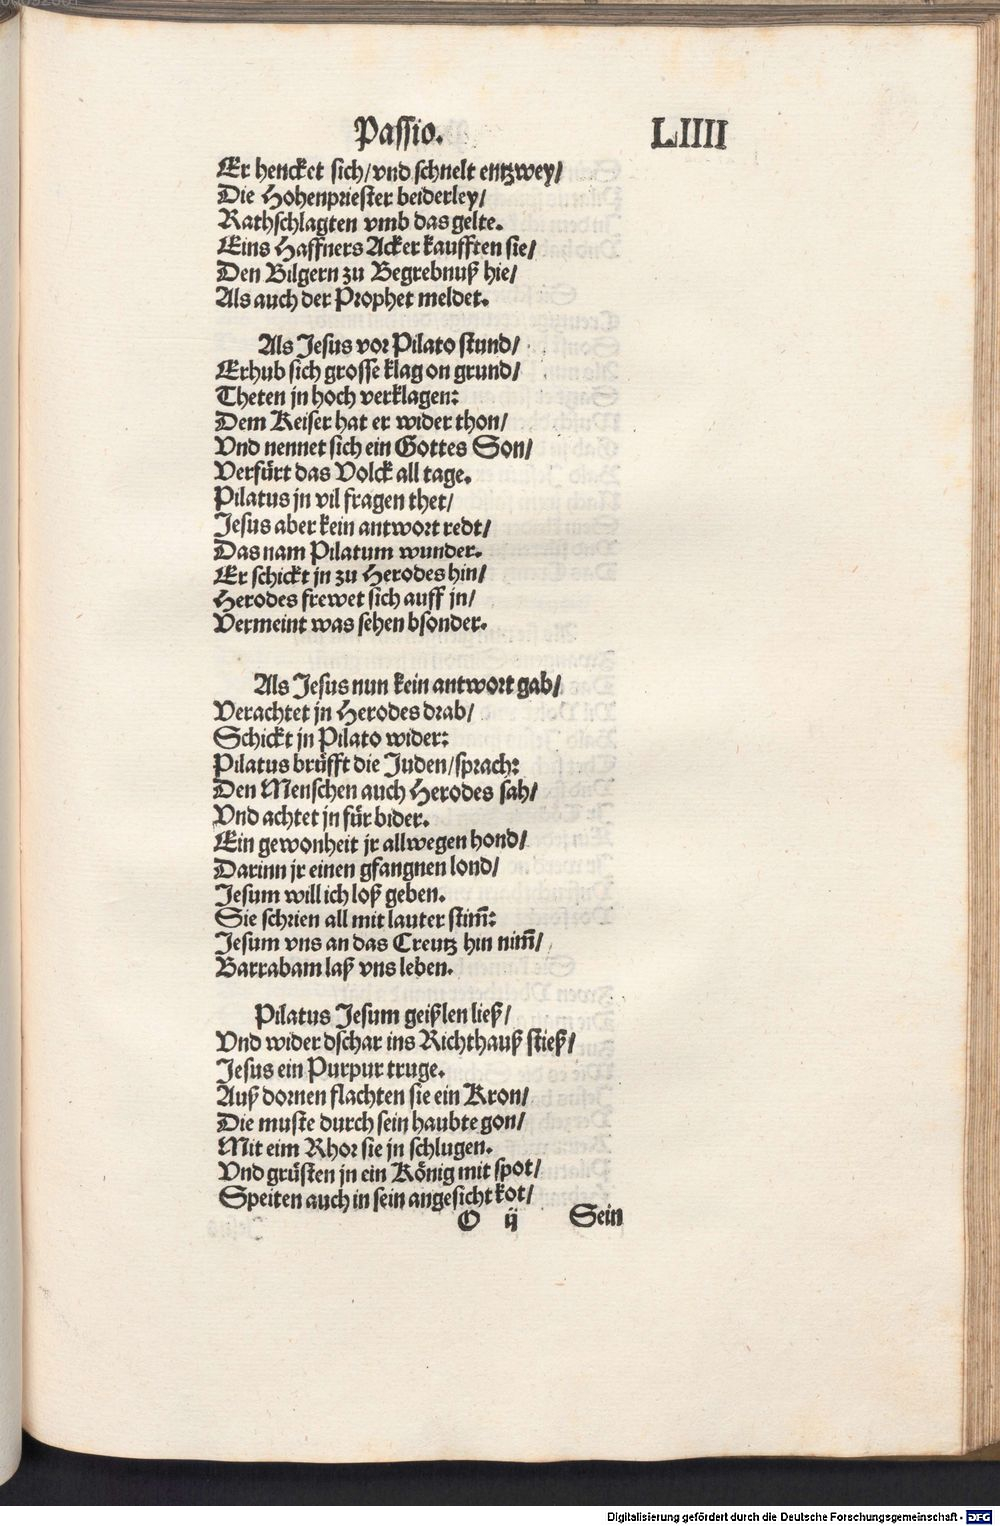 Passio. LIIII
Er hencket sich/vnd schnelt entzwey/
Die Hohenpriester beiderley/
Rathschlagten vmb das gelte.
Eins Haffners Acker kaufften sie/
Den Bilgern zu Begrebnuß hie/
Als auch der Prophet meldet.
Als Jesus vor Pilato stund/
Erhub sich grosse klag on grund/
Theten jn hoch verklagen:
Dem Keiser hat er wider thon/
Vnd nennet sich ein Gottes Son/
Verfürt das Volck all tage.
Pilatus jn vil fragen thet/
Jesus aber kein antwort redt/
Das nam Pilatum wunder.
Er schickt jn zu Herodes hin/
Herodes frewet sich auff jn/
Vermeint was sehen bsonder.
Als Jesus nun kein antwort gab/
Verachtet jn Herodes drab/
Schickt jn Pilato wider:
Pilatus brüfft die Juden/sprach:
Den Menschen auch Herodes sah/
Vnd achtet jn für bider.
Ein gewonheit jr allwegen hond/
Darinn jr einen gfangnen lond/
Jesum will ich loß geben.
Sie schrien all mit lauter stim̃:
Jesum vns an das Creutz hin nim̃/
Barrabam laß vns leben.
Pilatus Jesum geißlen ließ/
Vnd wider dschar ins Richthauß stieß/
Jesus ein Purpur truge.
Auß dornen flachten sie ein Kron/
Die muste durch sein haubte gon/
Mit eim Rhor sie jn schlugen.
Vnd grüsten jn ein König mit spot/
Speiten auch in sein angesicht kot/
O ij Sein
Digitalisierung gefördert durch die Deutsche Forschungsgemeinschaft - DFG